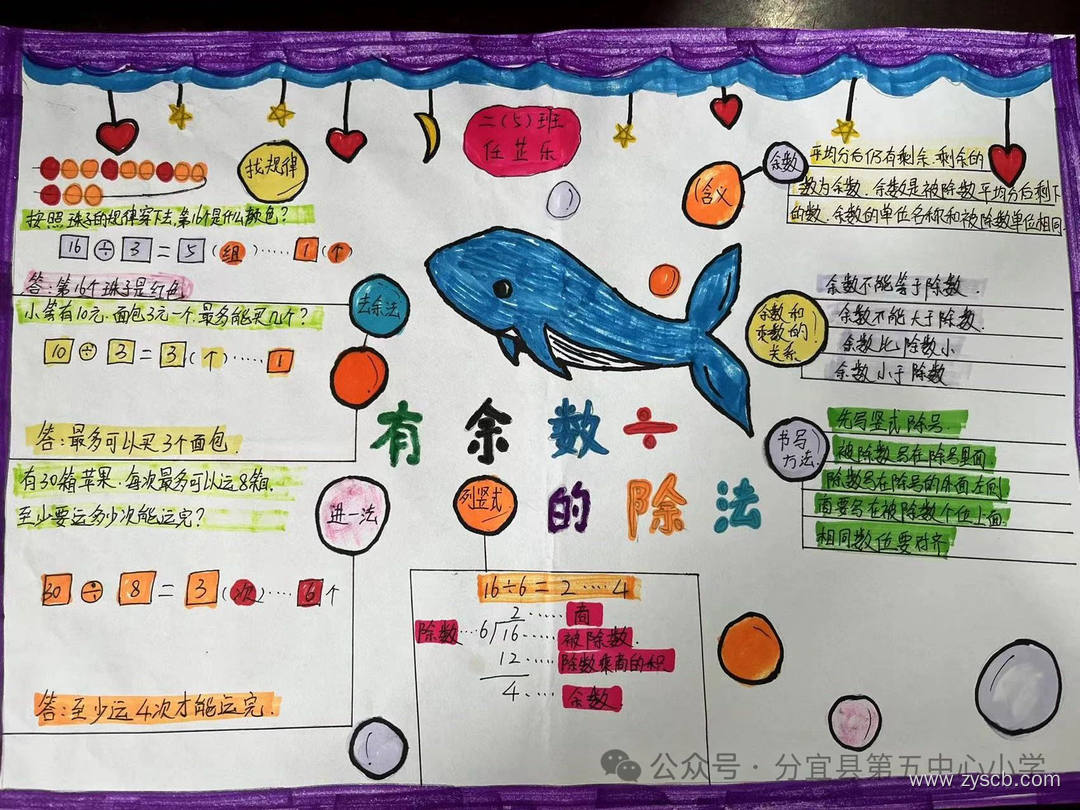 二(5)班
任芷乐
找规律
按照珠子的规律穿下去,第16个是什么颜色?
16÷3=5(组)……1(个)
答:第16个珠子是红色
去余法
小芳有10元,面包3元一个,最多能买几个?
10÷3=3(个)……1
答:最多可以买3个面包
进一法
有30箱苹果,每次最多可以运8箱,
至少要运多少次能运完?
30÷8=3(次)……6个
答:至少运4次才能运完.
有余数÷
的除法
列竖式
16÷6=2……4
2……商
除数…6 16……被除数.
12……除数乘商的积
4……余数
含义
余数
平均分后仍有剩余,剩余的
数为余数.余数是被除数平均分后剩下
的数.余数的单位名称和被除数单位相同.
余数和
乘数的!
关系
余数不能等于除数.
余数不能大于除数.
余数比除数小
余数小于除数
书写
方法.
先写竖式除号.
被除数写在除号里面
除数写在除号的外面左侧
商要写在被除数个位上面.
相同数位要对齐
公众号·分宜县第五中心小学
www.zyscb.com